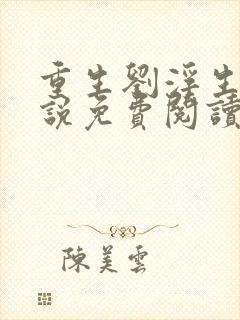 重生劉淫生
說免費閱讀
陳美雲